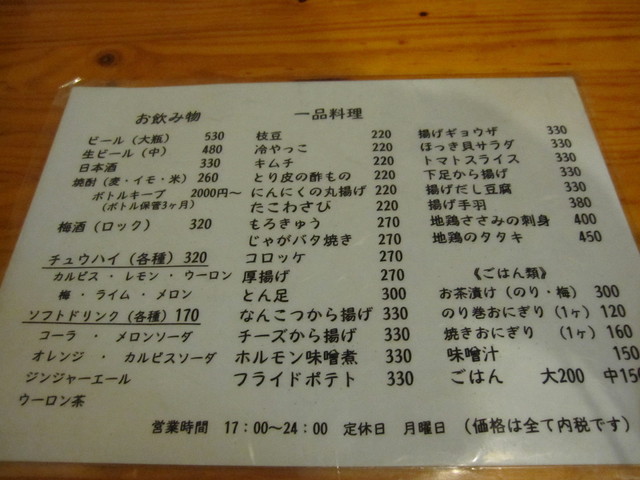 お飲み物
ビール（大瓶） 530
生ビール（中） 480
日本酒 330
焼酎（麦・イモ・米） 260
ボトルキープ 2000円〜
（ボトル保管3ヶ月）
梅酒（ロック） 320
チュウハイ（各種） 320
カルピス ・ レモン ・ ウーロン
梅 ・ ライム ・ メロン
ソフトドリンク（各種） 170
コーラ ・ メロンソーダ
オレンジ ・ カルピスソーダ
ジンジャーエール
ウーロン茶
一品料理
枝豆 220
冷やっこ 220
キムチ 220
とり皮の酢もの 220
にんにくの丸揚げ 220
たこわさび 220
もろきゅう 270
じゃがバタ焼き 270
コロッケ 270
厚揚げ 270
とん足 300
なんこつから揚げ 330
チーズから揚げ 330
ホルモン味噌煮 330
フライドポテト 330
揚げギョウザ 330
ほっき貝サラダ 330
トマトスライス 330
下足から揚げ 330
揚げだし豆腐 330
揚げ手羽 380
地鶏ささみの刺身 400
地鶏のタタキ 450
《ごはん類》
お茶漬け（のり・梅） 300
のり巻おにぎり（1ヶ） 120
焼きおにぎり （1ヶ） 160
味噌汁 150
ごはん 大200 中150
営業時間 17：00〜24：00 定休日 月曜日 （価格は全て内税です）